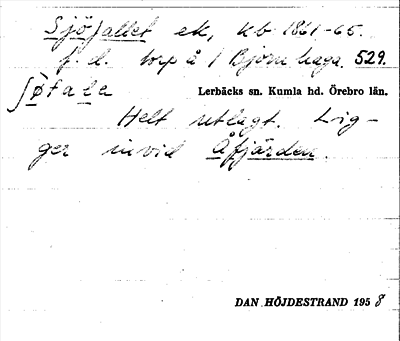 Sjöfallet ek, kb 1861-65.
f. d. torp å 1 Björnhaga. 529.
ʃø̀fale Lerbäcks sn. Kumla hd. Örebro län.
Helt utlagt. Lig-
ger invid Åfjärden.
DAN HÖJDESTRAND 1958